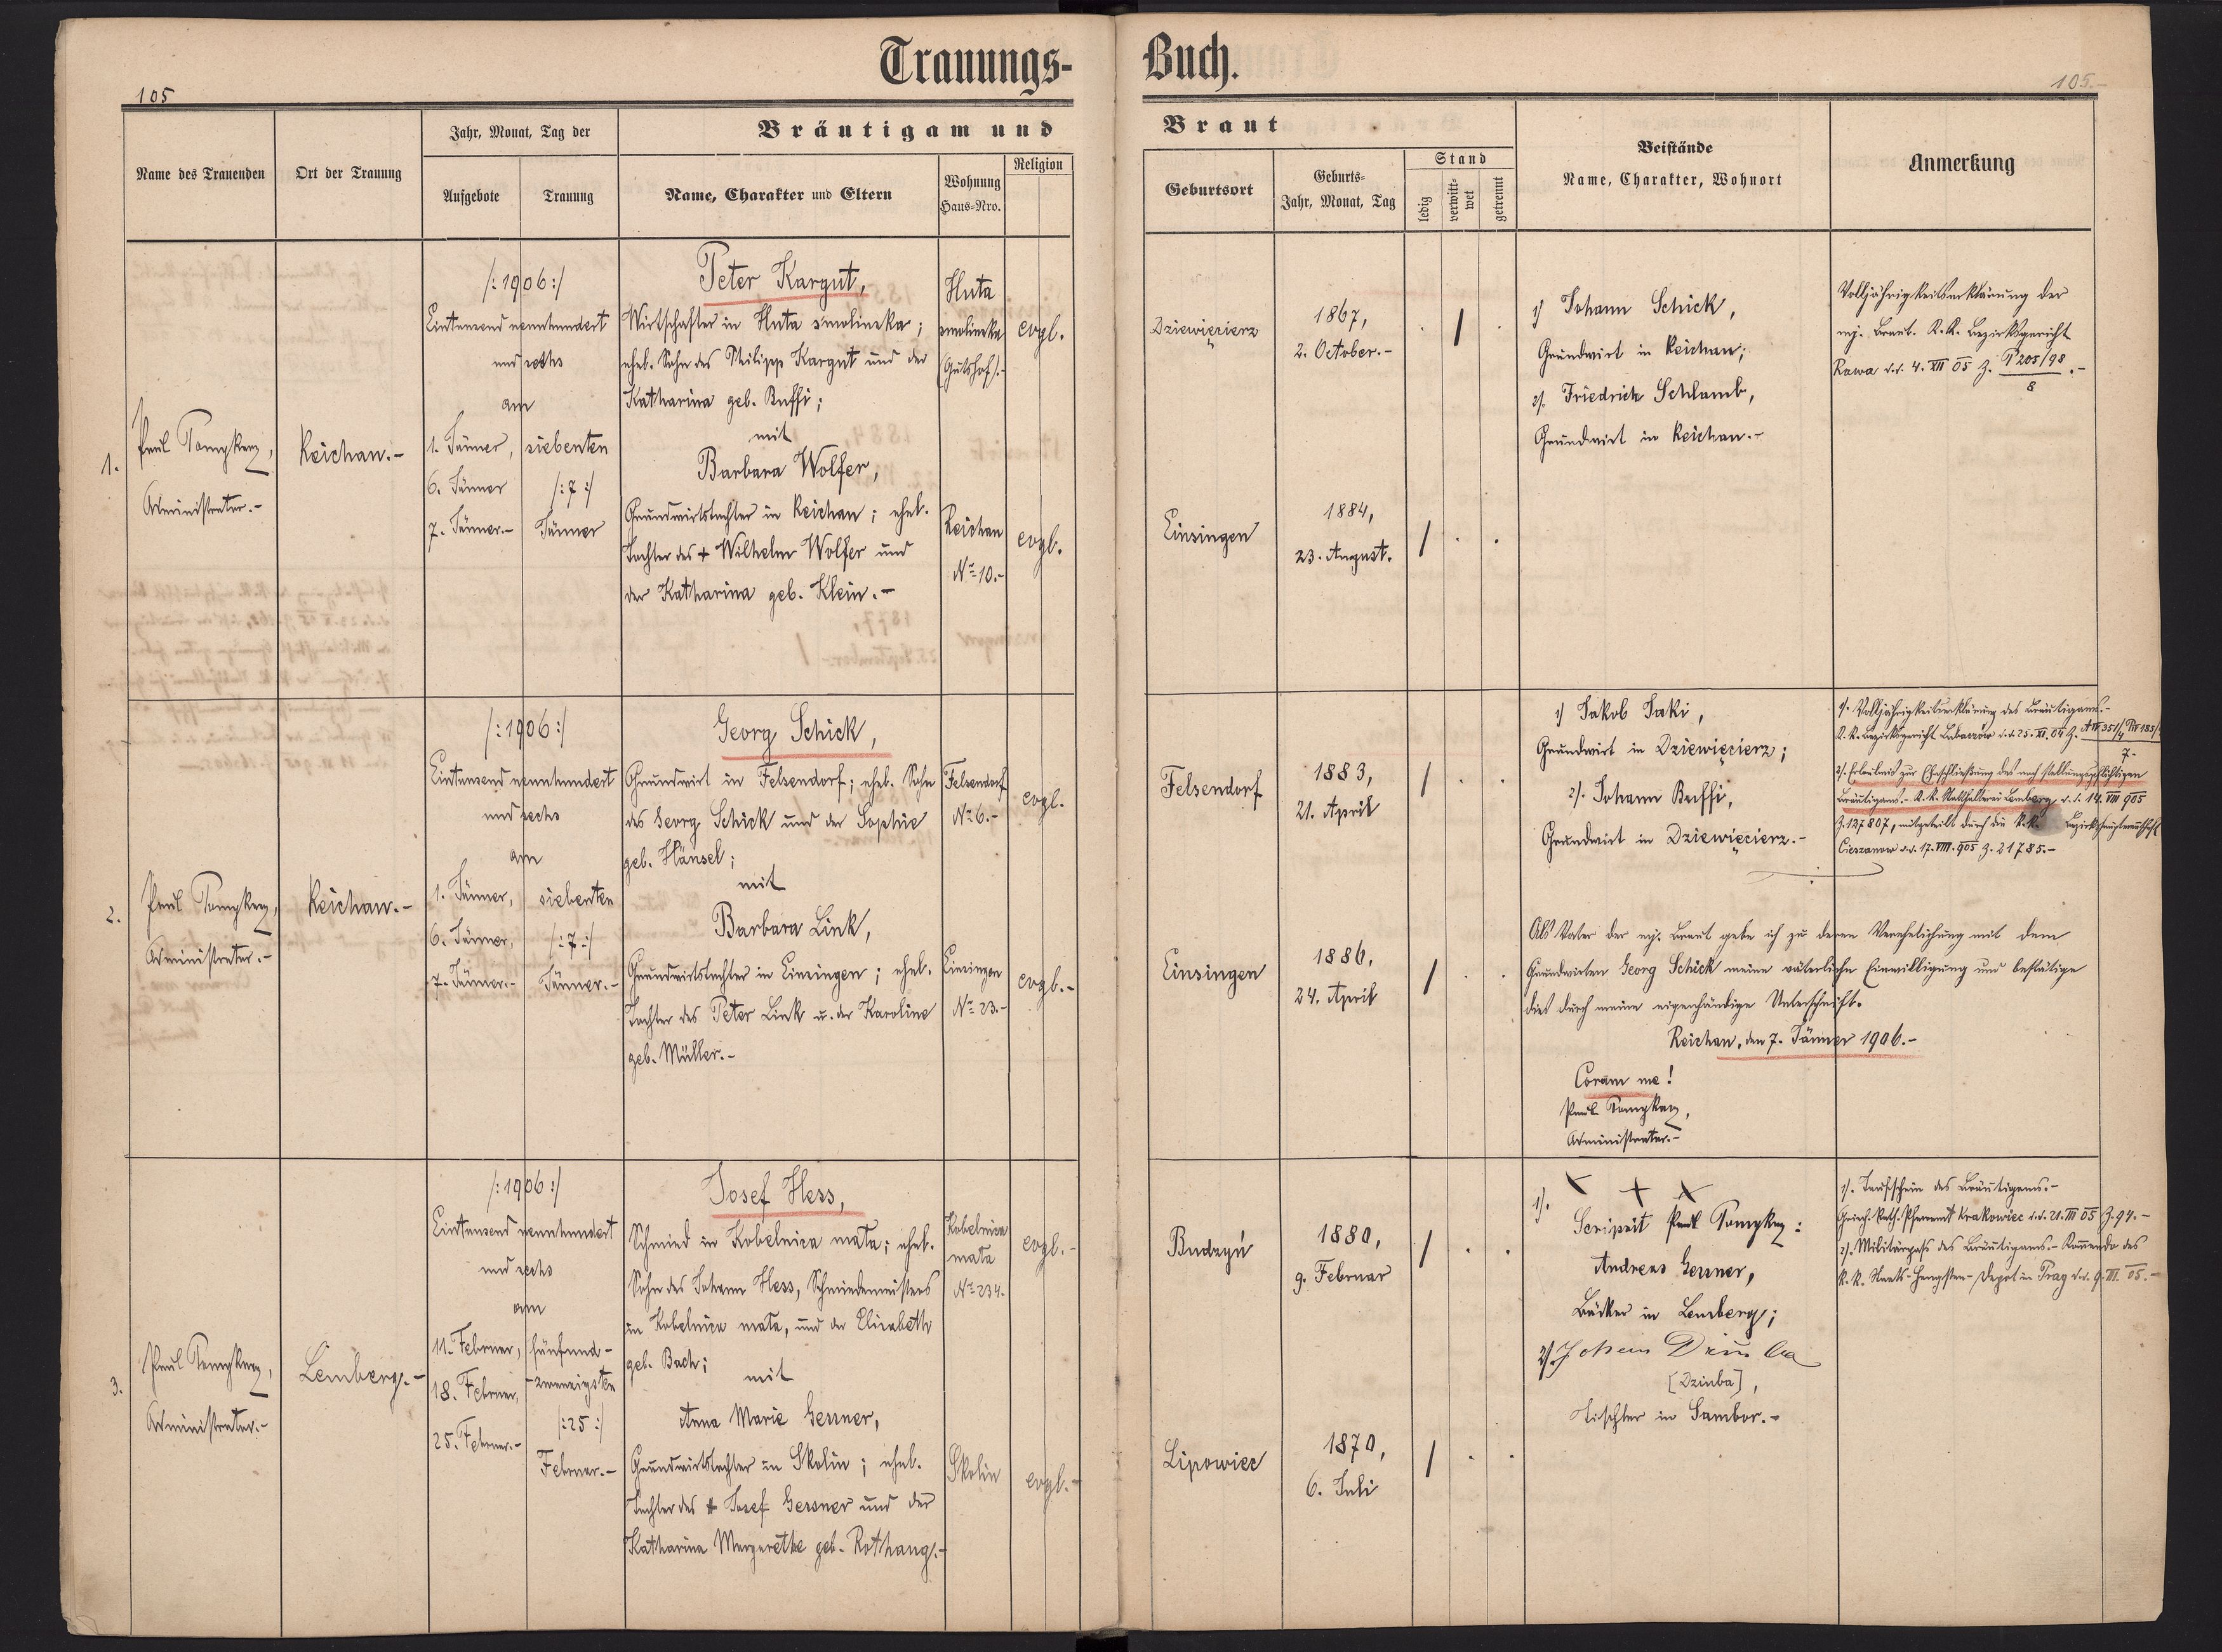 Trauungs-Buch.
105
105.-
Name des Trauenden
Ort der Trauung
Jahr, Monat, Tag der
Aufgebote
Trauung
Bräutigam und
Name, Charakter und Eltern
Wohnung
Haus-Nro.
Religion
Braut
Geburtsort
Geburts-
Jahr, Monat, Tag
Stand
ledig
verwitt-
wet
getrennt
Beistände
Name, Charakter, Wohnort
Anmerkung
1.
Administrator.-
Reichau.-
/:1906:/
Eintausend neunhundert
und sechs
am
1. Jänner,
6. Jänner
7. Jänner.-
siebenten
/:7:/
Jänner
Peter Kargut,
Wirtschafter in Huta smolinska;
ehel. Sohn des Philipp Kargut und der
Katharina geb. Buffi;
mit
Barbara Wolfer,
Grundwirtstochter in Reichau; ehel.
Tochter des + Wilhelm Wolfer und
der Katharina geb. Klein.-
Huta
smolinska
(Gutshof).-
Reichau
No 10.-
evgl.
evgl.
Dziewięcierz
1867,
2. October.-
Einsingen
1884,
23. August.
1) Johann Schick,
Grundwirt in Reichau;
2). Friedrich Schlamb,
Grundwirt in Reichau.-
Volljährigkeitserklärung der
mj. Braut. K.K. Bezirksgericht
Rawa d.d. 4. XII 05 Z. P 205/98 .-
8
2.
Administrator.-
Reichau.-
/:1906:/
Eintausend neunhundert
und sechs
am
1. Jänner,
6. Jänner,
7. Jänner.-
siebenten
/:7:/
Jänner.-
Georg Schick,
Grundwirt in Felsendorf; ehel. Sohn
des Georg Schick und der Sophie
geb. Hänsel;
mit
Barbara Link,
Grundwirtstochter in Einsingen; ehel.
Tochter des Peter Link u. der Karoline
geb. Müller.-
Felsendorf
No 6.-
Einsingen
No 23.-
evgl.
evgl.-
Felsendorf
1883,
21. April
Einsingen
1886,
24. April
1) Jakob Jaki,
Grundwirt in Dziewięcierz;
2). Johann Buffi,
Grundwirt in Dziewięcierz.-
1). Volljährigkeitserklärung des Bräutigams.-
K.K. Bezirksgericht Lubaczów d.d. 25. XI. 04 Z.
7.-
2). Erlaubnis zur Eheschließung des noch stellungspflichtigen
Bräutigams.- K.K. Statthalterei Lemberg d.d. 14. VIII 905
Z. 127807, mitgeteilt durch die K.K. Bezirkshauptmannschaft
Cieszanow d.d. 17. VIII. 905 Z. 21785.-
Als Vater der mj. Braut gebe ich zu deren Verehelichung mit dem
Grundwirten Georg Schick meine väterliche Einwilligung und bestätige
dies durch meine eigenhändige Unterschrift.
Reichau, den 7. Jänner 1906.-
Coram me!
Administrator.-
3.
Administrator.-
Lemberg.-
/:1906:/
Eintausend neunhundert
und sechs
am
11. Februar,
18. Februar,
25. Februar.-
fünfund-
-zwanzigsten
/:25:/
Februar.-
Josef Hess,
Schmied in Kobelnica mała; ehel.
Sohn des Johann Hess, Schmiedemeisters
in Kobelnica mała, und der Elisabeth
geb. Bach;
mit
Anna Marie Gessner,
Grundwirtstochter in Skolin; ehel.
Tochter des + Josef Gessner und der
Katharina Margarethe geb. Rothaug.-
Kobelnica
mała
No 234.
Skolin
evgl.-
evgl.-
Budzyń
1880,
9. Februar
Lipowiec
1870,
6. Juli
1). X X X
Andreas Gessner,
Bäcker in Lemberg;
2).
[Dziuba],
Tischler in Sambor.-
1). Taufschein des Bräutigams.-
Griech. kath. Pfarramt Krakowiec d.d. 21. III 05 Z. 94.-
2). Militärpass des Bräutigams.- Komando des
K.K. Staats-Hengsten-Depot in Prag d.d. 9. III. 05.-